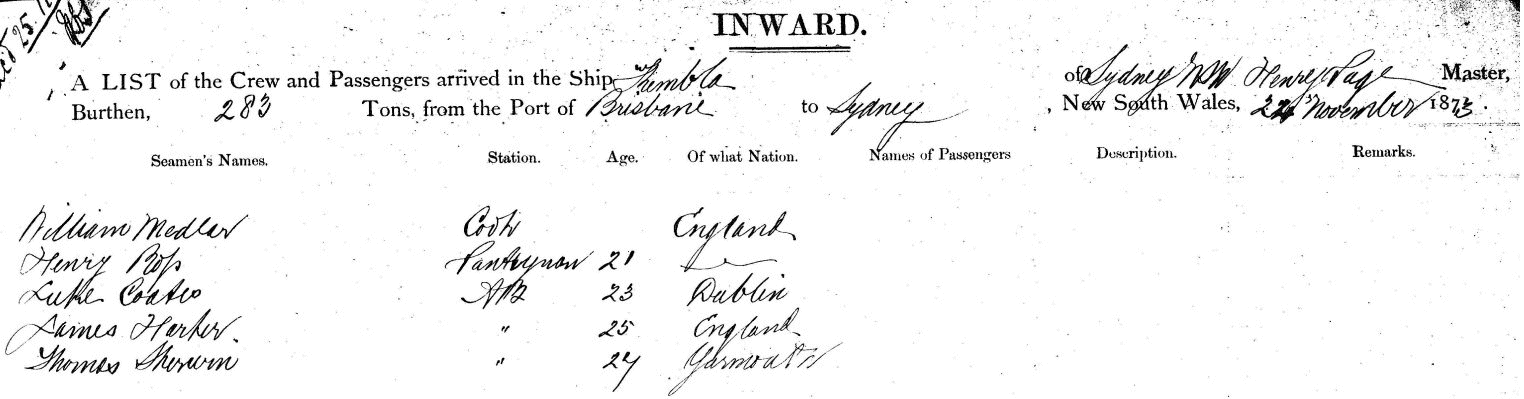 25.11
INWARD.
A LIST of the Crew and Passengers arrived in the Ship Kembla of Sydney NSW Henry Page Master,
Burthen, 283 Tons, from the Port of Brisbane to Sydney, New South Wales, 24 November 1873.
Seamen's Names. Station. Age. Of what Nation. Names of Passengers Description. Remarks.
William Medlar Cook England
Henry Rofs Pantryman 21 "
Luke Coates AB 23 Dublin
James Harker. " 25 England
Thomas Sherwin " 24 Yarmouth